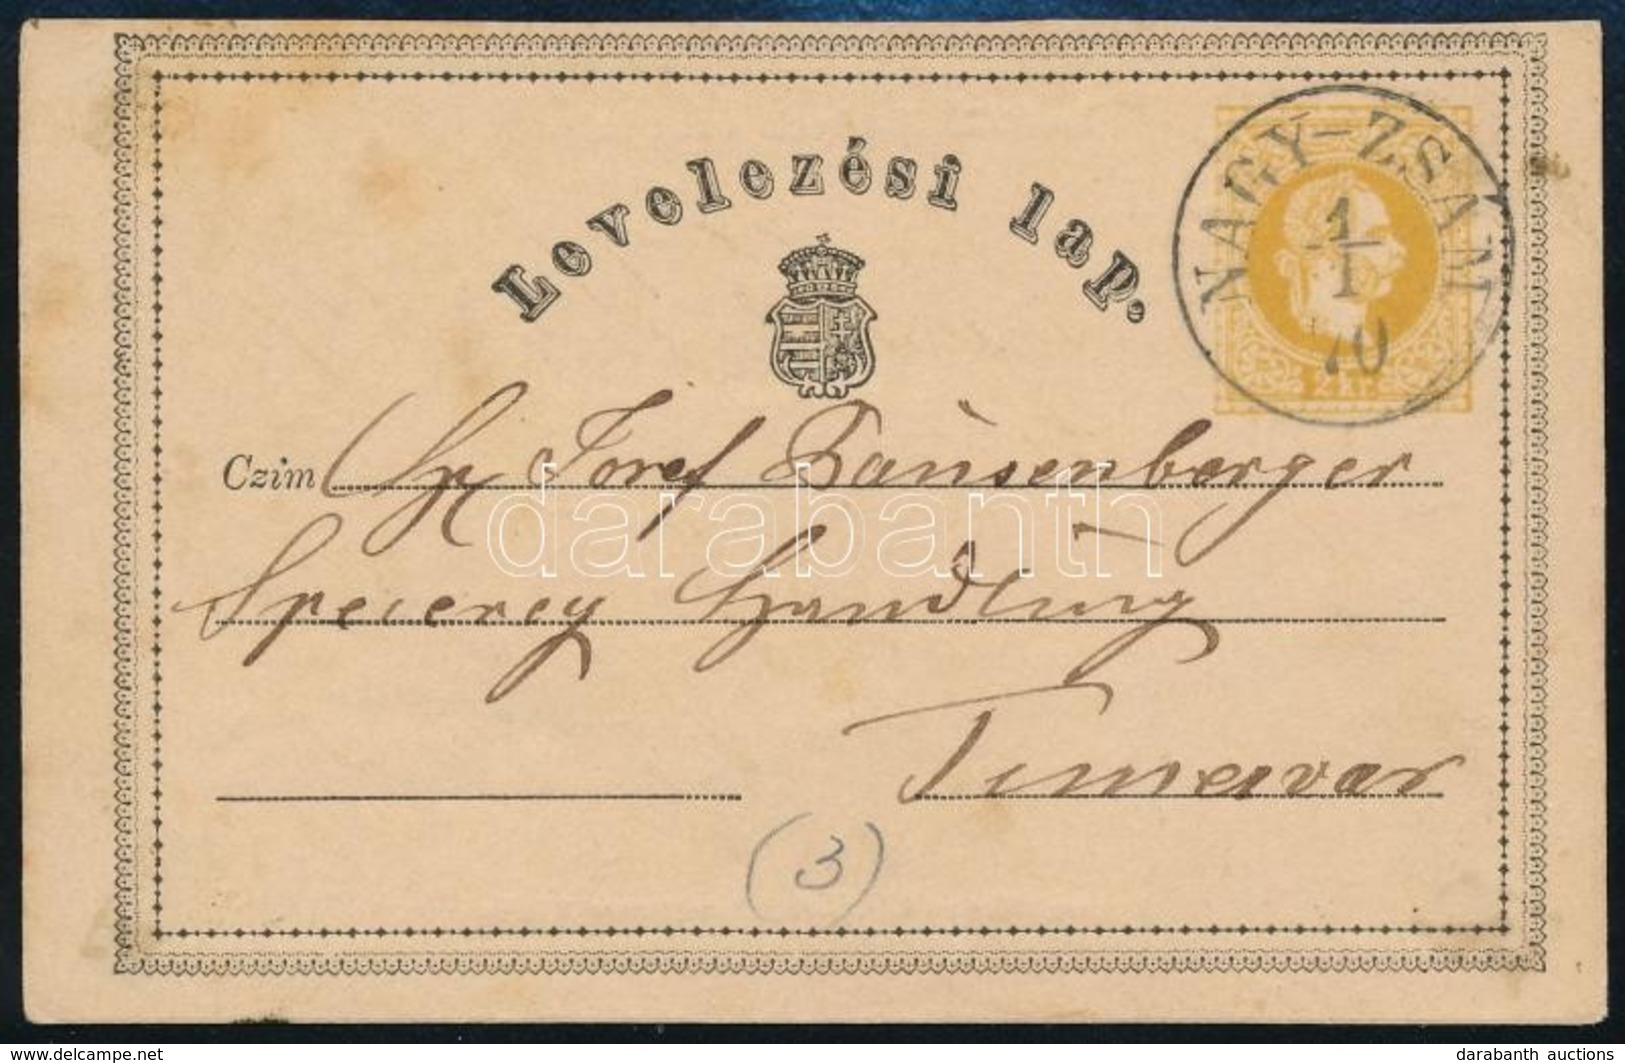 Levelezési lap.
NAGY-ZSÁM
1/1
70
2 kr.
Czim Hr Josef Bausenberger
Specerey Handlung
Temesvar
(3)
darabanth
darabanth auctions